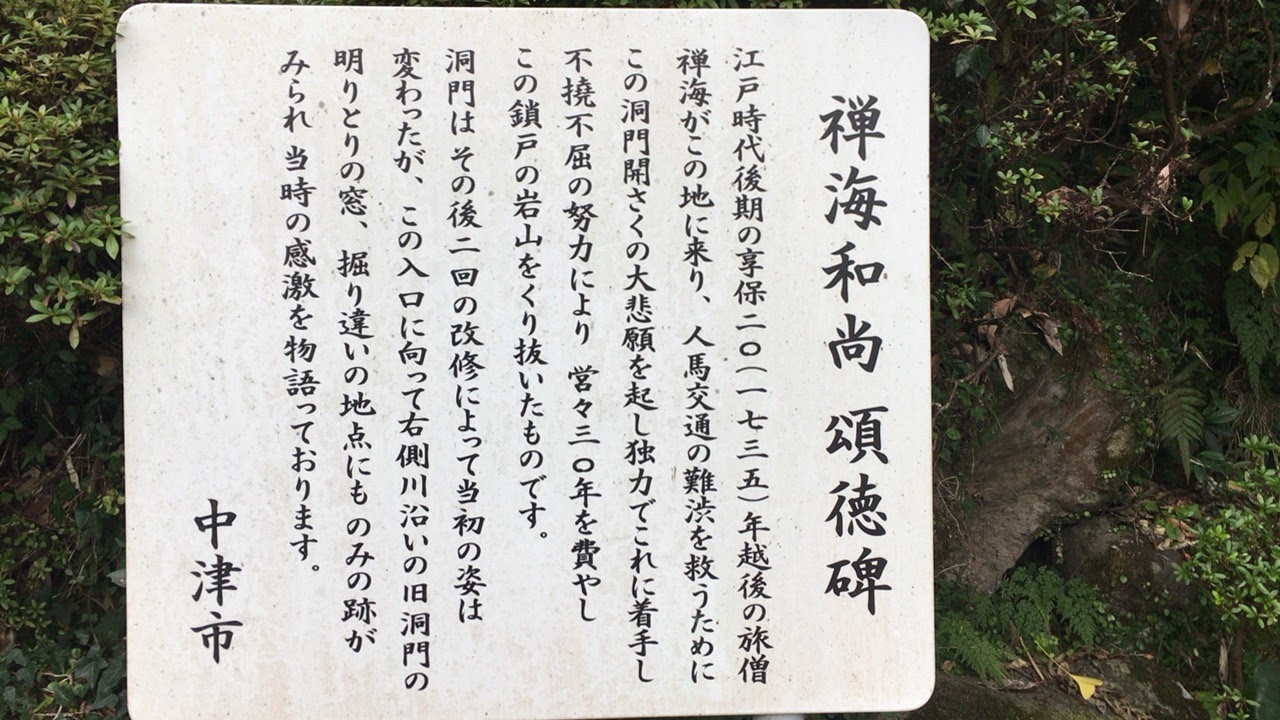 禅海和尚 頌徳碑
江戸時代後期の享保二〇(一七三五)年越後の旅僧
禅海がこの地に来り、人馬交通の難渋を救うために
この洞門開さくの大悲願を起し独力でこれに着手し
不撓不屈の努力により 営々三〇年を費やし
この鎖戸の岩山をくり抜いたものです。
洞門はその後二回の改修によって当初の姿は
変わったが、この入口に向って右側川沿いの旧洞門の
明りとりの窓、掘り違いの地点にも のみの跡が
みられ 当時の感激を物語っております。
中津市